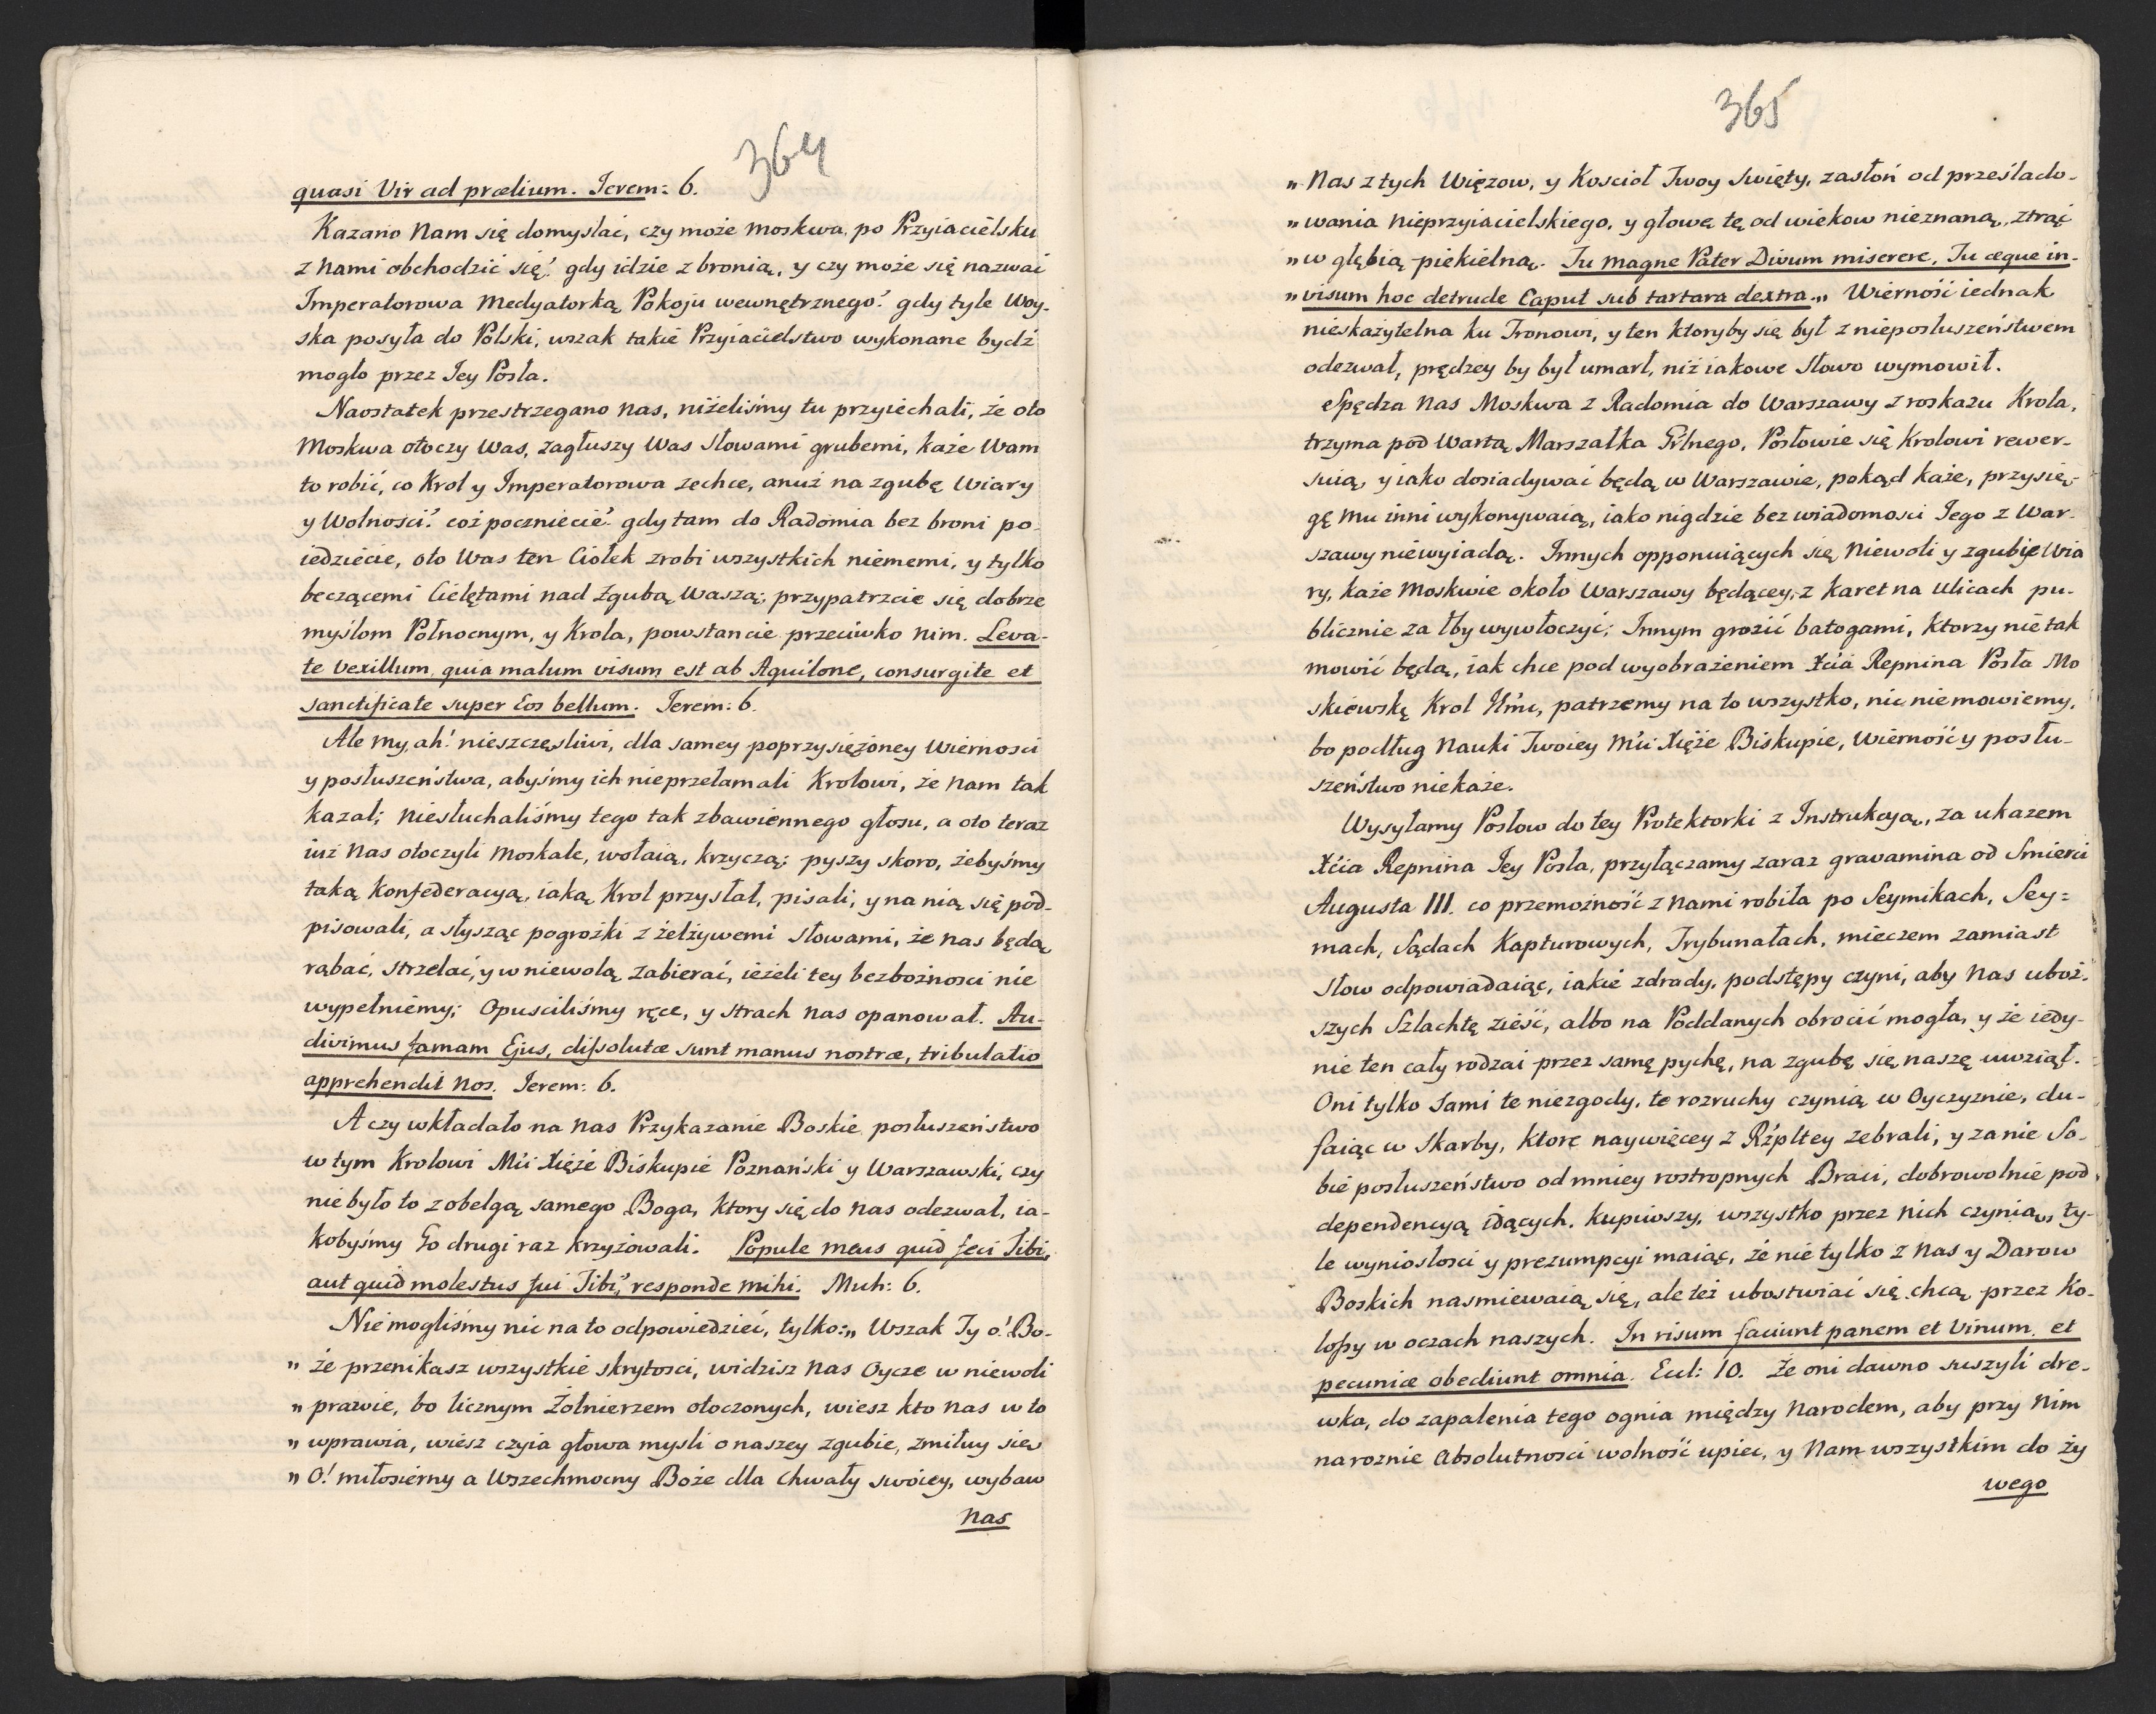 364
quasi Vir ad prælium. Ierem: 6.
Kazano Nam się domyslać, czy może Moskwa po Przyiacielsku
z Nami obchodzić się? gdy idzie z bronią, y czy może się nazwać
Imperatorowa Medyatorką Pokoju wewnętrznego? gdy tyle Woy-
ska posyła do Polski, wszak takie Przyiacielstwo wykonane bydź
mogło przez Jey Posła.
Naostatek przestrzegano nas, niżeliśmy tu przyiechali, że oto
Moskwa otoczy Was, zagłuszy Was Słowami grubemi, każe Wam
to robić, co Krol y Imperatorowa zechce, anuż na zgubę Wiary
y Wolnosci? coż poczniecie? gdy tam do Radomia bez broni po-
iedziecie, oto Was ten Ciołek zrobi wszystkich niememi, y tylko
beczącemi Cielętami nad Zgubą Waszą; przypatrzcie się dobrze
myślom Połnocnym, y Krola, powstancie przeciwko nim. Leva-
te vexillum quia malum visum est ab Aquilone, consurgite et
sanctificate super Eos bellum. Ierem: 6.
Ale my, ah! nieszczęsliwi, dla samey poprzysiężoney Wiernosci
y posłuszeństwa, abyśmy ich nieprzełamali Krolowi, że nam tak
kazał; niesłuchaliśmy tego tak zbawiennego głosu, a oto teraz
iuż Nas otoczyli Moskale, wołaią, krzyczą; pyszy skoro, żebyśmy
taką Konfederacyą, iaką Krol przysłał, pisali, y na nią się pod-
pisowali, a słysząc pogrożki z żelżywemi słowami, że nas będą
rąbać, strzelać, y w niewolą zabierać, ieżeli tey bezbożnosci nie
wypełniemy; Opusciliśmy ręce, y strach nas opanował. Au-
divimus famam Ejus, dissolutæ sunt manus nostræ, tribulatio
apprehendit nos. Ierem: 6.
A czy wkładało na nas Przykazanie Boskie posłuszeństwo
w tym Krolowi Mći Xięże Biskupie Poznański y Warszawski, czy
nie było to z obelgą samego Boga, ktory się do nas odezwał, ia-
kobyśmy Go drugi raz krzyżowali. Popule meus quid feci Tibi,
aut quid molestus fui Tibi? responde mihi. Mich: 6.
Nie mogliśmy nic na to odpowiedzieć, tylko: „ Wszak Ty o! Bo-
„ że przenikasz wszystkie skrytosci, widzisz nas Oycze w niewoli
„ prawie, bo licznym Żołnierzem otoczonych, wiesz kto nas w to
„ wprawia, wiesz czyia głowa mysli o naszey zgubie, zmiłuy się
„ O! miłosierny a Wszechmocny Boże dla Chwały swoiey, wybaw
nas
365
„ Nas z tych Więzow, y Kosciół Twoy Swięty, zasłoń od prześlado-
„ wania nieprzyiacielskiego, y głowę tę od wiekow nieznaną, ztrąć
„ w głębią piekielną. Tu magne Pater Divum miserere, Tu æque in-
„ visum hoc detrude Caput sub tartara dextra. „ Wierność iednak
nieskażytelna ku Tronowi, y ten ktoryby się był z nieposłuszeństwem
odezwał, prędzey by był umarł, niż iakowe Słowo wymowił.
Spędza nas Moskwa z Radomia do Warszawy z roskazu Krola,
trzyma pod Wartą Marszałka Grlnego, Posłowie się Krolowi rewer-
suią, y iako dosiadywać będą w Warszawie, pokąd każe, przysię-
gę mu inni wykonywaią, iako nigdzie bez wiadomosci Iego z War-
szawy niewyiadą. Innych opponuiących się Niewoli y zgubie Wia
ry, każe Moskwie około Warszawy będącey, z karet na Ulicach pu-
blicznie za łby wywłoczyć; Innym grozić batogami, ktorzy nie tak
mowić będą, iak chce pod wyobrażeniem Xcia Repnina Posła Mo
skiewskę Krol JImć, patrzemy na to wszystko, nic niemowiemy,
bo podług Nauki Twoiey Mći Xięże Biskupie, Wierność y posłu-
szeństwo niekaże.
Wysyłamy Posłow do tey Protektorki z Instrukcyą, za ukazem
Xcia Repnina Jey Posła, przyłączamy zaraz gravamina od Smierci
Augusta III. co przemożność z nami robiła po Seymikach, Sey=
mach, Sądach Kapturowych, Trybunałach, mieczem zamiast
Słow odpowiadaiąc, iakie zdrady, podstępy czyni, aby nas uboż-
szych Szlachtę zieść, albo na Poddanych obrocić mogła, y że iedy-
nie ten cały rodzai przez samę pychę, na zgubę się naszę uwziął.
Oni tylko sami te niezgody, te rozruchy czynią w Oyczyznie, du-
faiąc w Skarby, ktore naywięcey z Rzpltey zebrali, y za nie So-
bie posłuszeństwo od mniey rostropnych Braci, dobrowolnie pod
dependencyą idących, kupiwszy, wszystko przez nich czynią, ty-
le wyniosłosci y prezumpcyi maiąc, że nie tylko z nas y Darow
Boskich nasmiewaią się, ale też ubostwiać się chcą przez Ko-
lossy w oczach naszych. In risum faciunt panem et Vinum et
pecuniæ obediunt omnia. Eccl: 10. Że oni dawno suszyli dre-
wka, do zapalenia tego ognia między Narodem, aby przy Nim
na roznie Absolutnosci wolność upiec, y Nam wszystkim do ży
wego